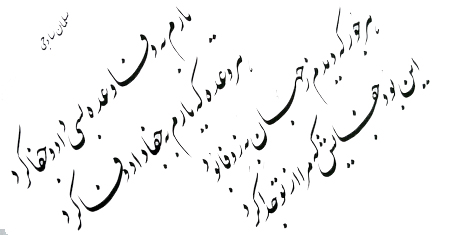 سلمان ساوجی
یارم به وفا وعده بسی داد و جفا کرد
هر وعده که یارم به جفا داد وفا کرد
هر جور که دیدم ز جهان به ز وفا بود
این بود جفایش که مرا از تو جدا کرد